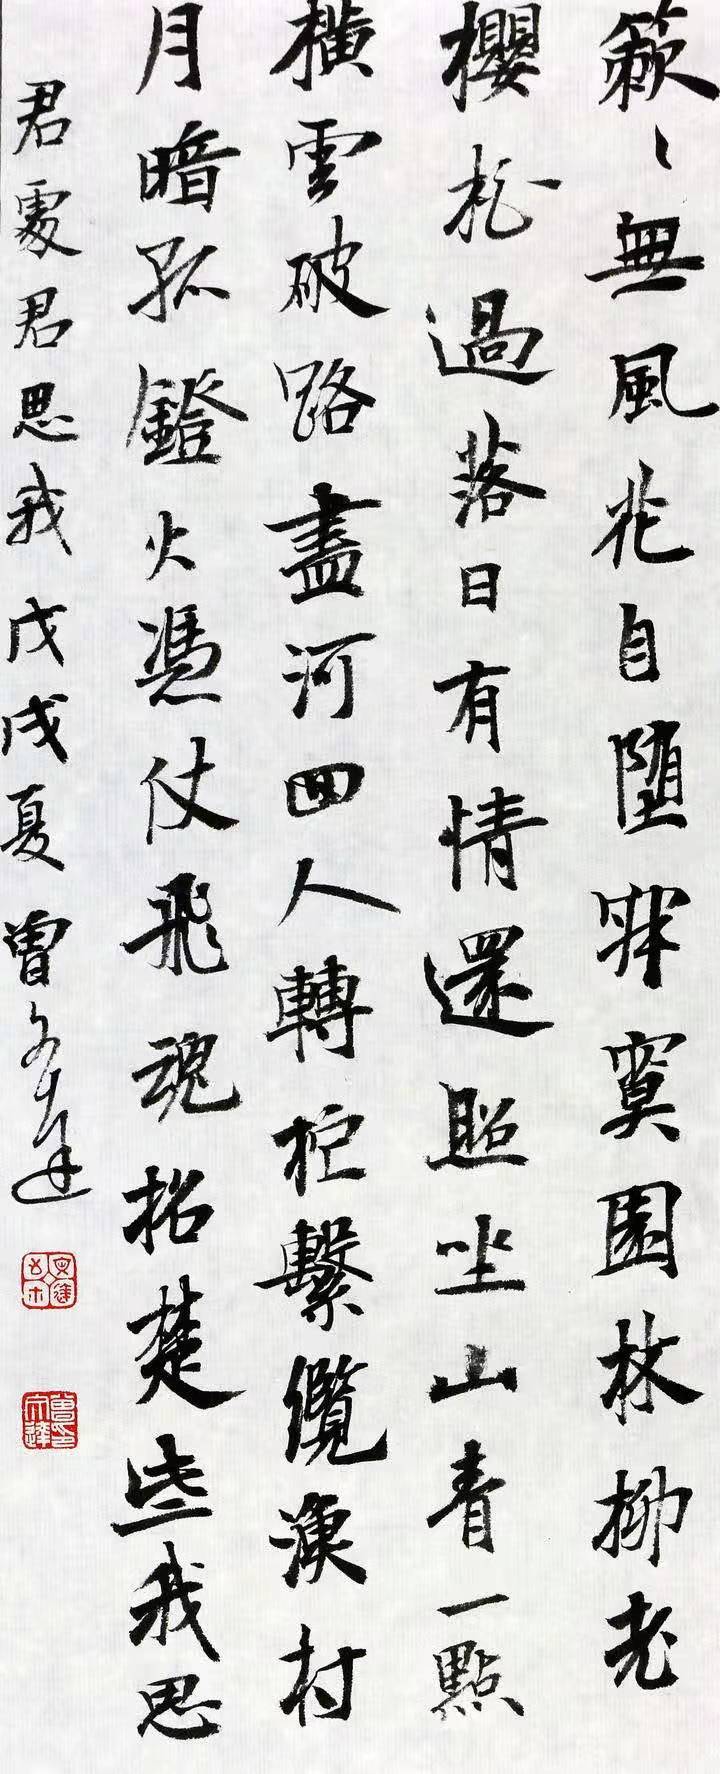 簌〻無風花自墮寂寞園林柳老
櫻桃過落日有情還照坐山青一點
橫雲破路盡河回人轉柁繫纜漁村
月暗孤鐙火憑仗飛魂招楚些我思
君處君思我戊戌夏曾